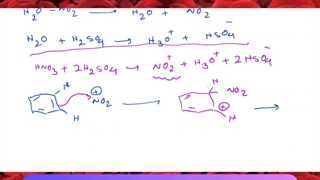 H₂O⁺ – NO₂ ⟶ H₂O + NO₂⁺
H₂O + H₂SO₄ ⟶ H₃O⁺ + HSO₄⁻
HNO₃ + 2H₂SO₄ ⟶ NO₂⁺ + H₃O⁺ + 2HSO₄⁻
H ⊕NO₂ ⟶ H NO₂ ⟶
H ⊕ H